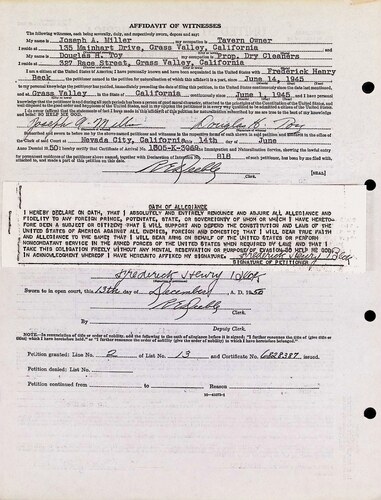 AFFIDAVIT OF WITNESSES
The following witnesses, each being severally, duly, and respectively sworn, depose and say:
My name is Joseph A. Miller, my occupation is Tavern Owner
I reside at 135 Mainhart Drive, Grass Valley, California
My name is Douglas H. Toy, my occupation is Prop. Dry Cleaners
I reside at 327 Race Street, Grass Valley, California
I am a citizen of the United States of America; I have personally known and have been acquainted in the United States with Frederick Henry
Beck, the petitioner named in the petition for naturalization of which this affidavit is a part, since June 14, 1945
to my personal knowledge the petitioner has resided, immediately preceding the date of filing this petition, in the United States continuously since the date last mentioned,
and at Grass Valley, in the State of California continuously since June 1, 1945, and I have personal
knowledge that the petitioner is and during all such periods has been a person of good moral character, attached to the principles of the Constitution of the United States, and
well disposed to the good order and happiness of the United States, and in my opinion the petitioner is in every way qualified to be admitted a citizen of the United States.
I do swear (affirm) that the statements of fact I have made in this affidavit of this petition for naturalization subscribed by me are true to the best of my knowledge
and belief: SO HELP ME GOD.
Joseph A. Miller Douglas H. Toy
Subscribed and sworn to before me by the above-named petitioner and witnesses in the respective forms of oath shown in said petition and affidavit in the office of
the Clerk of said Court at Nevada City, California this 14th day of June
Anno Domini 19 50 I hereby certify that Certificate of Arrival No. from the Immigration and Naturalization Service, showing the lawful entry
for permanent residence of the petitioner above named, together with Declaration of Intention No. 818 of such petitioner, has been by me filed with,
attached to, and made a part of this petition on this date.
Clerk. [SEAL]
OATH OF ALLEGIANCE
I HEREBY DECLARE ON OATH, THAT I ABSOLUTELY AND ENTIRELY RENOUNCE AND ABJURE ALL ALLEGIANCE AND
FIDELITY TO ANY FOREIGN PRINCE, POTENTATE, STATE, OR SOVEREIGNTY OF WHOM OR WHICH I HAVE HERETO-
FORE BEEN A SUBJECT OR CITIZEN; THAT I WILL SUPPORT AND DEFEND THE CONSTITUTION AND LAWS OF THE
UNITED STATES OF AMERICA AGAINST ALL ENEMIES, FOREIGN AND DOMESTIC; THAT I WILL BEAR TRUE FAITH
AND ALLEGIANCE TO THE SAME; THAT I WILL BEAR ARMS ON BEHALF OF THE UNITED STATES OR PERFORM
NONCOMBATANT SERVICE IN THE ARMED FORCES OF THE UNITED STATES WHEN REQUIRED BY LAW; AND THAT I
TAKE THIS OBLIGATION FREELY WITHOUT ANY MENTAL RESERVATION OR PURPOSE OF EVASION; SO HELP ME GOD.
IN ACKNOWLEDGMENT WHEREOF I HAVE HERETO AFFIXED MY SIGNATURE. Frederick Henry Beck
SIGNATURE OF PETITIONER
Frederick Henry Beck
Sworn to in open court, this 13th day of December, A. D. 1950
Clerk.
By
Deputy Clerk.
NOTE.—In renunciation of title or order of nobility, add the following to the oath of allegiance before it is signed: "I further renounce the title of (give title or
titles) which I have heretofore held," or "I further renounce the order of nobility (give the order of nobility) to which I have heretofore belonged."
Petition granted: Line No. 2 of List No. 13 and Certificate No. 6828387 issued.
Petition denied: List No.
Petition continued from to Reason